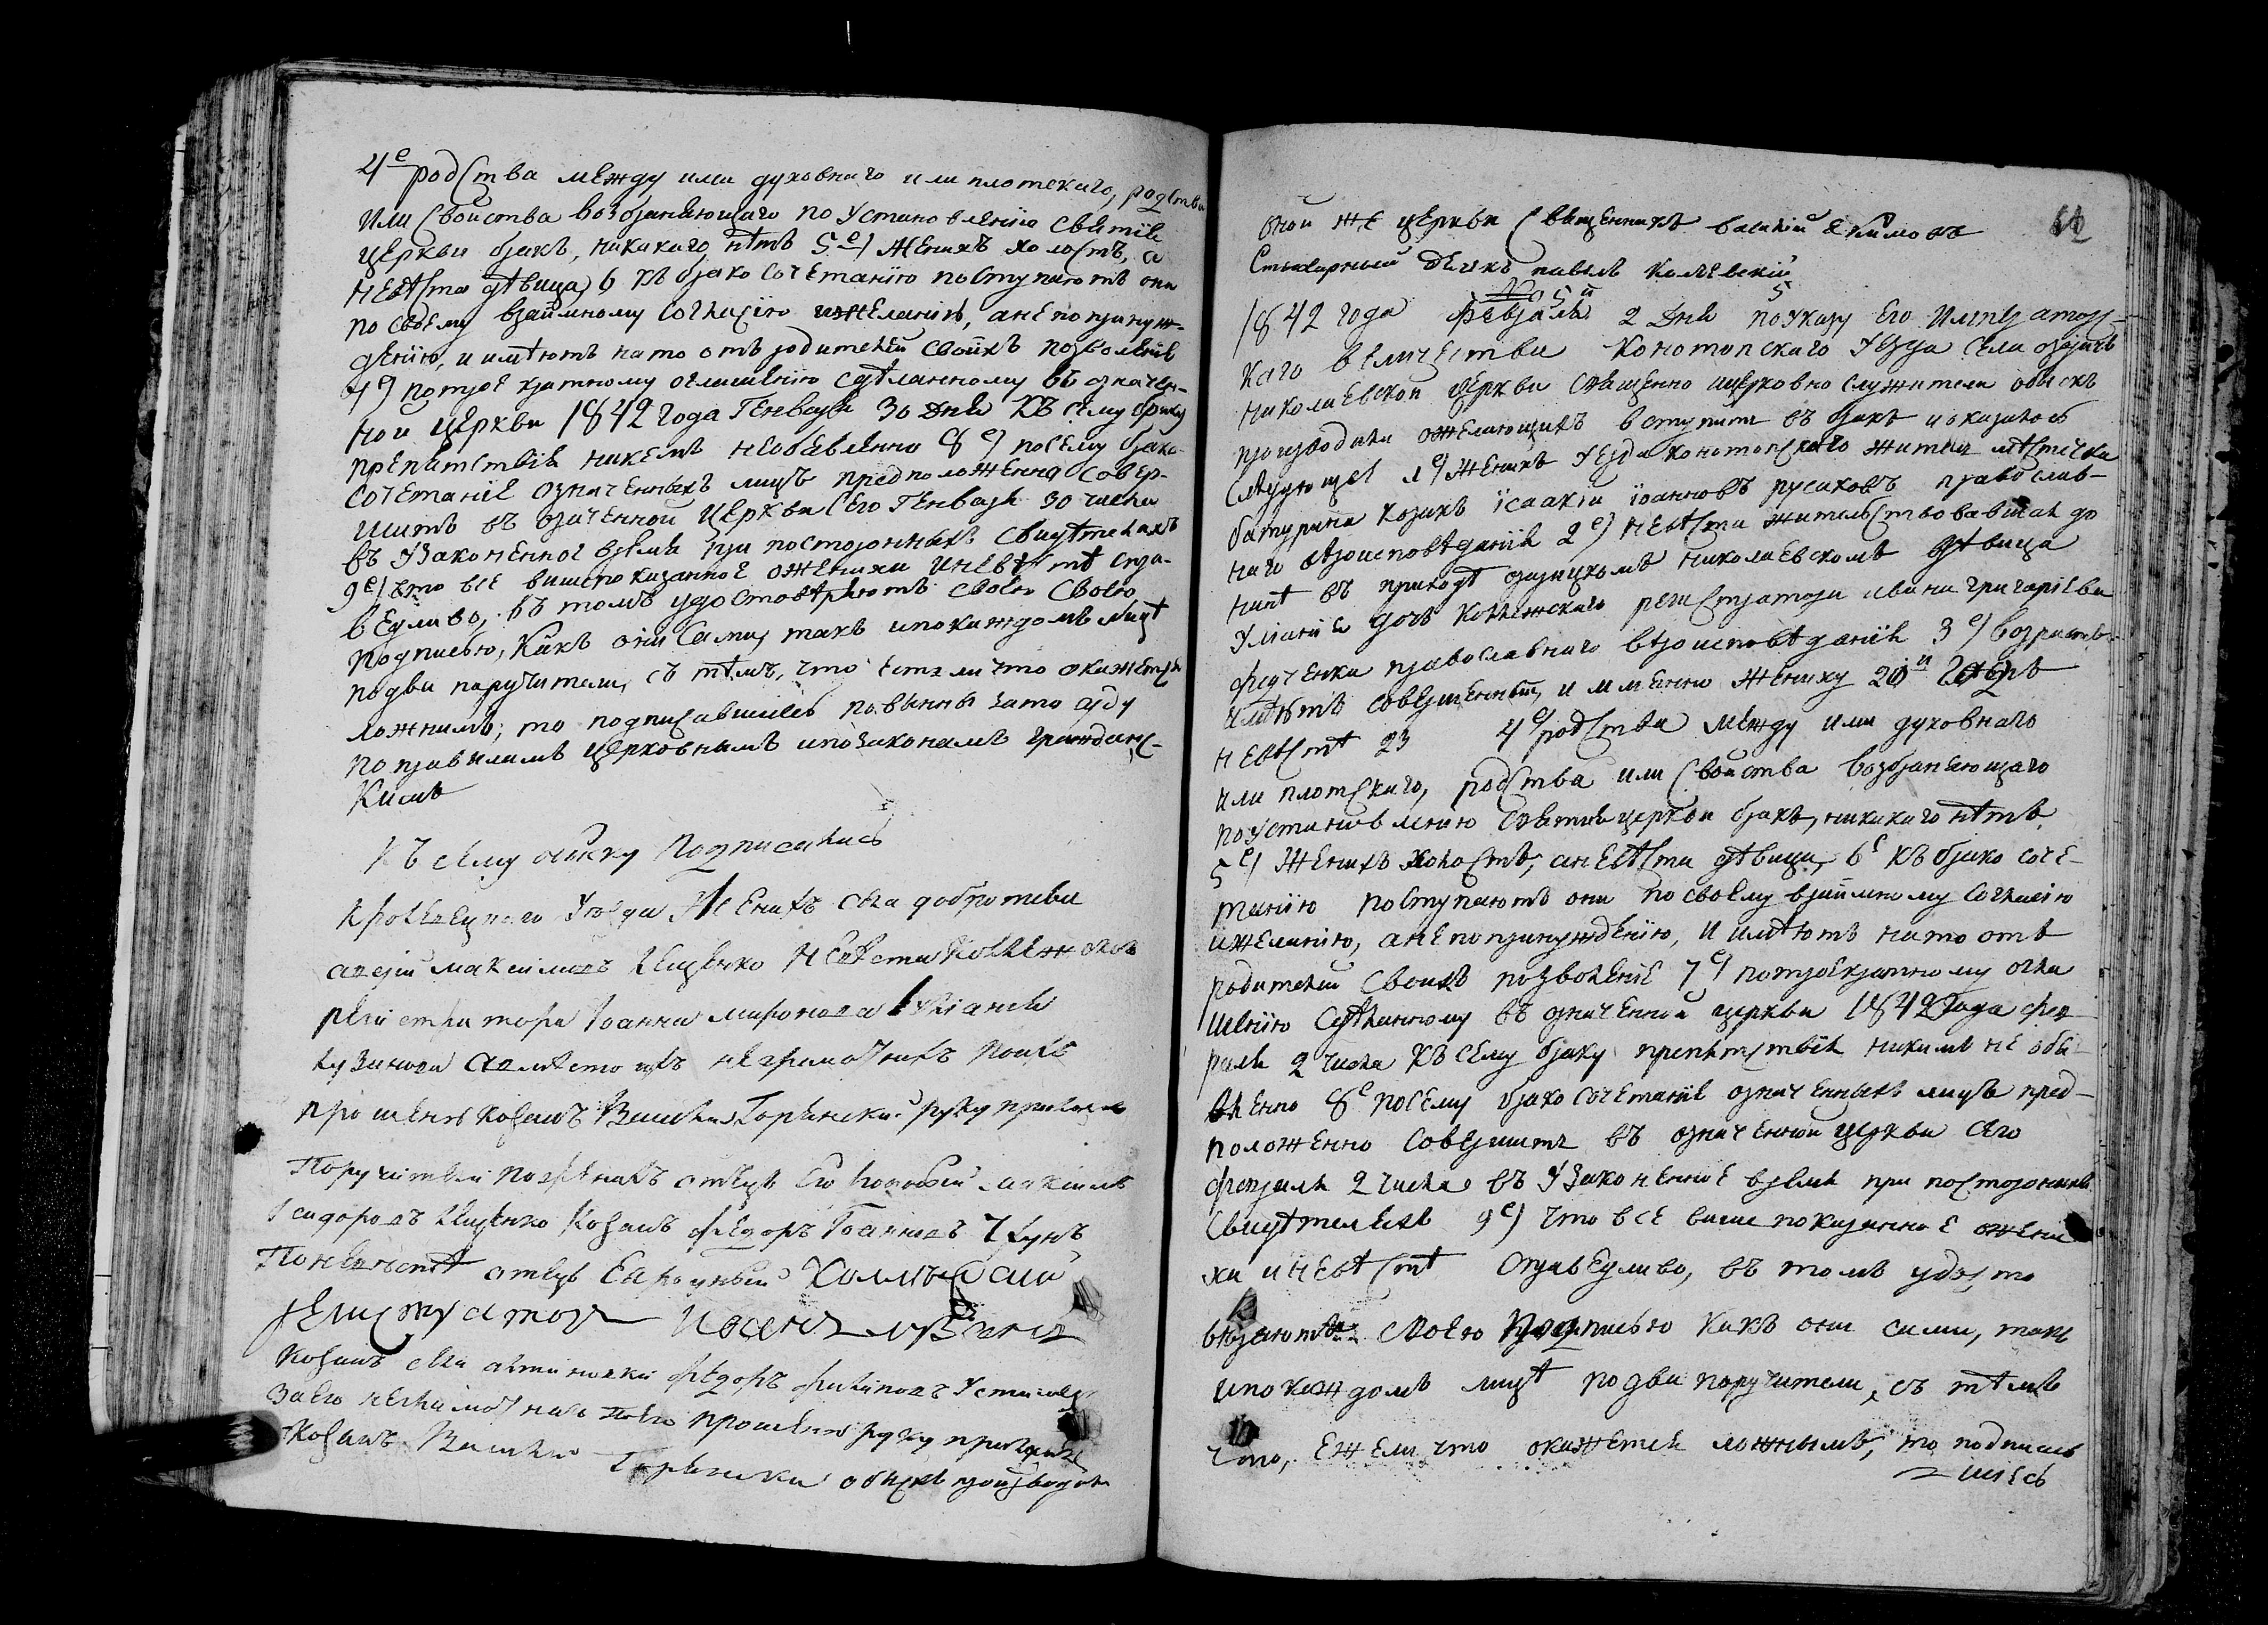 4е родства между ими духовнаго или плотскаго, родства
или свойства возбраняющаго по установленію святія
церкви бракъ, никакаго нѣтъ 5е) женихъ холостъ, а
невѣста дѣвица, 6 къ бракосочетанію поступаютъ они
по своему взаимному согласію и желанію, а не по принуж-
денію, и имѣютъ на то отъ родителей своихъ позволеніе
7е) по троекратному оглашенію сдѣланному въ означен-
ной церкви 1842 года Генваря 30 дня къ сему браку
препятствія никемъ необявленно 8е) посему брако-
сочетаніе означенныхъ лицъ предположенно совер-
шить въ озиченной церкви сего Генваря 30 числа
въ узаконенное время при постороннихъ свидѣтеляхъ
9е) что всё вишепоказанное о женихи и невѣстѣ спра-
ведливо, въ томъ удостовѣряютъ своею своею
подписью, какъ они сами, такъ и по каждомъ лицѣ
по два поручители, съ тѣмъ, что естли что окажется
ложнимъ; то подписавшіесь повынны зато суду
по правиламъ церковнымъ и по законамъ гражданс-
кимъ
Къ сему обиску подписались
Кролевецкаго уѣзда женихъ села добротова
алѣсій максимовъ Ищенко невѣста коллежскаго
регистратора Іоанна миронова Уліанія
кузинова а вмѣсто ихъ неграмотнихъ по ихъ
прошенію козакъ Василій Горѣнский руку приложилъ
Поручители по женихъ отецъ его родной максимъ
Ісидоровъ Ищенко козакъ федоръ Іоанновъ Чкунъ
По невѣстѣ отецъ ея родный коллежскій
регистраторъ Иванъ
козакъ села федоръ филиповъ
за его неграмотнаго по его прошенію руку приложилъ
козакъ Василій Горѣнскій обискъ производили
оной же церкви священникъ василий Екимовъ
Стихарный дячкъ павелъ
№ 5й
1842 года февраля 2 дня по указу его императорс-
каго величества Конотопскаго уѣзда села
николаевской церкви священно и церковно служители обискъ
производили о желающихъ вступить въ бракъ и оказалось
слѣдующее 1е) женихъ уезда конотопскаго жителъ мѣстечка
батурина козакъ ісаакій іоанновъ русаковъ православ-
наго вѣроисповѣданія 2е) невѣста жительствовавшая до
нинѣ въ приходѣ николаевскомъ дѣвица
уліанія дочъ коллежскаго регистратора ивана григоріева
федченка православнаго вѣроисповѣданія 3е) возрастъ
имѣютъ совершенный, и именно жениху 20и лѣтъ
невѣстѣ 23 4е) родства между ими духовнаго
или плотскаго, родства или свойства возбраняющаго
по установленію святія церкви бракъ, никакаго нѣтъ
5е) женихъ холостъ, а невѣста дѣвица, 6е къ бракосоче-
танію поступаютъ они по своему взаимному согласію
и желанію, а не по принужденію, и имѣютъ на то отъ
родителей своихъ позволеніе 7е) по троекратному огла
шенію сдѣланному въ означенной церкви 1842 года фев
раля 2 числа къ сему браку препятствія никимъ не обя
вленно 8е посему бракосочетаніе означенныхъ лицъ пред-
положенно совершить въ означенной церкви сего
февраля 2 числа въ узаконенное время при посторонныхъ
свидѣтеляхъ 9е) что всё више показанное о жени
хи и невѣстѣ справедливо, въ томъ удосто
вѣраютъ своею подписью какъ они сами, такъ
и по каждомъ лицѣ по два поручители, съ тѣмъ
что, ежели что окажется ложнымъ, то подписав
шіесь